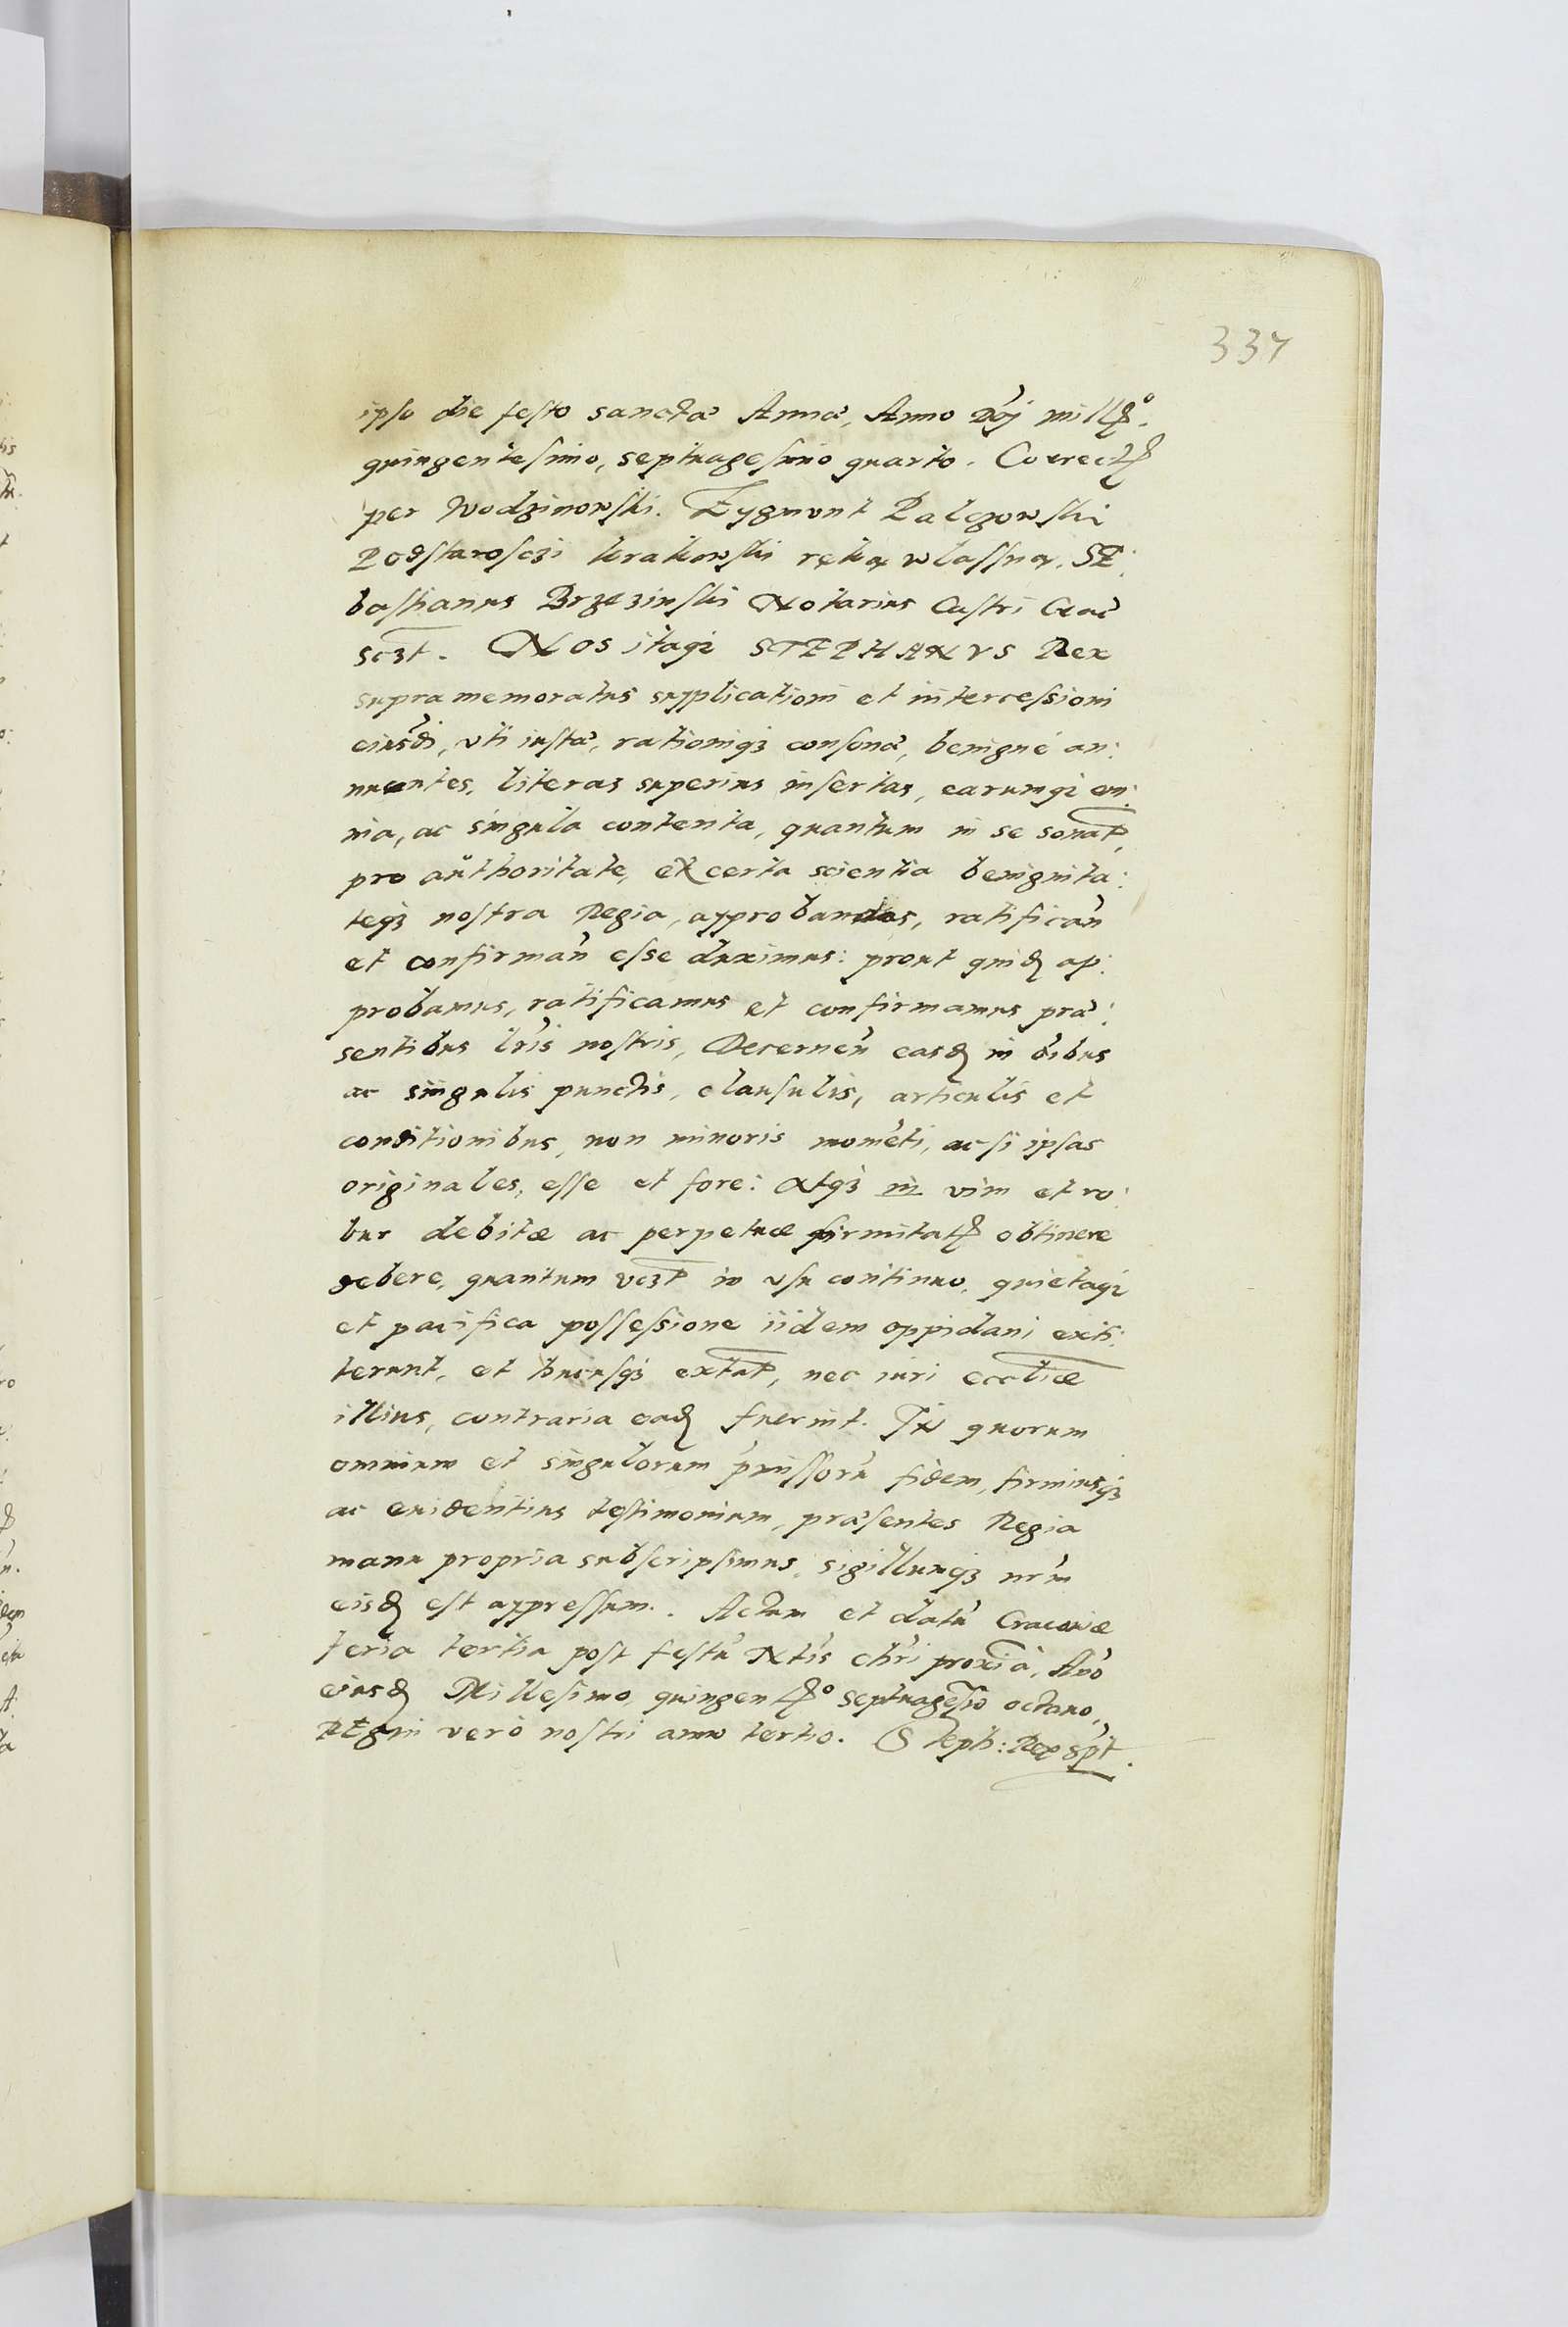 337
ipso die festo sanctæ Annæ, Anno Dnj mill°.
quingentesimo, septuagesimo quarto. Correct
per Wodzinowski. Zygmunt Palczowski
Podstarosczi krakowski ręką własną. SE:
bastianus Brzezinski Notarius Castri Crac
sczt. Nos itaq; STEPHANVS Rex
supra memoratus supplicationi et intercessioni
eiusdi, vti iustæ, rationiq; consonæ, benigné an:
nuentes, literas superius insertas, earumq; om:
nia, ac singula contenta, quantum in se sonat,
pro authoritate, ex certa scientia benignita:
teq; nostra Regia, approbandas, ratifican
et confirman esse duximus: prout quid ap:
probamus, ratificamus et confirmamus præ:
sentibus lris nostris, Decernen easd in oibus
ac singulis punctis, clausulis, articulis et
conditionibus, non minoris mometi, ac si ipsas
originales, esse et fore: Atq; in vim et ro:
bur debitæ ac perpetuæ firmitat obtinere
debere, quantum vczt in vsu continuo, quietaq;
et pacifica possessione iidem oppidani exti:
terunt, et hucusq; extat, nec iuri eccliæ
illius, contraria ead fuerint. In quorum
omnium et singulorum pmissoru fidem, firmiusq;
ac euidentius testimonium, præsentes Regia
manu propria subscripsimus, sigillumq; nrm
eisd est appressum. Actum et datu Cracoviæ
feria tertia post festu Ntis chri proxia, Ano
eiusd Millesimo, quingent° septuagesio octavo,
REgni verò nostri anno tertio. Steph: Rex spt.